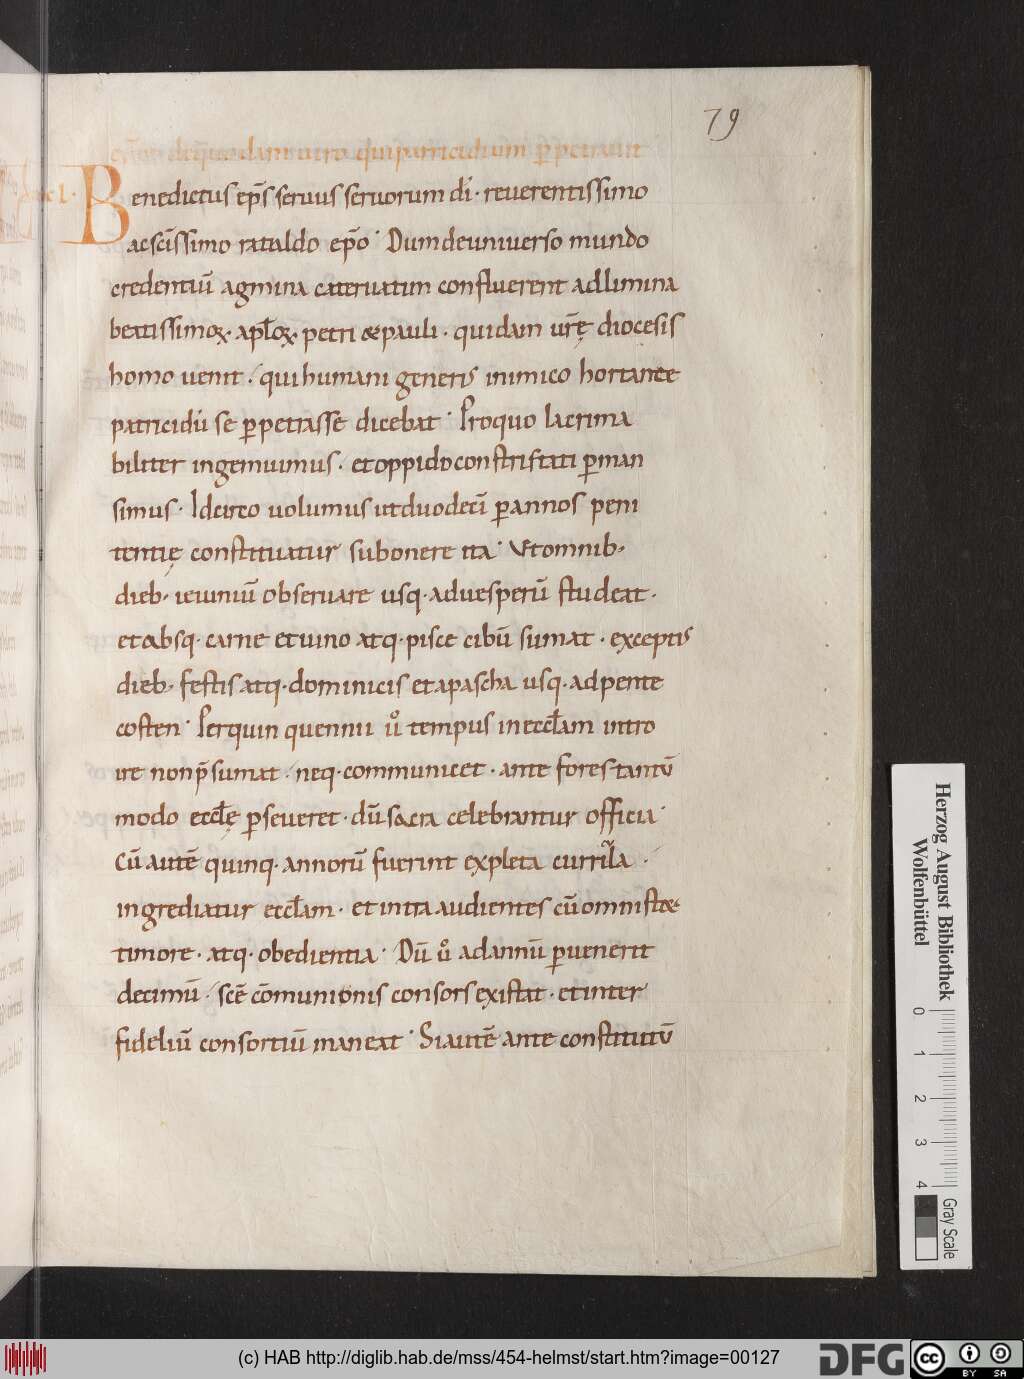 79
dequodam uiro qui parricidium ꝑpetrauit
Benedictus ep̄s seruus seruorum dī· reuerentissimo
ac sc̄issimo rataldo ep̄o· Dum de uniuerso mundo
credentiū agmina cateruatim confluerent ad limina
beatissimoꝝ· apl̄oꝝ· petri & pauli· quidam ur̄ę diocesis
homo uenit· qui humani generis inimico hortante
patricidiū se ꝑpetrasse dicebat· Pro quo lacrima
biliter ingemuimus· et oppido constristati ꝑman
simus· Idcirco uolumus ut duodecī ꝑ annos peni
tentię constituatur sub onere ita· Ut omnib;
dieb; ieiuniū obseruare usq· ad uesperū studeat·
et absq· carne et uino atq· pisce cibū sumat· exceptis
dieb; festis atq· dominicis et a pascha usq· ad pente
costen· Per quinquennii ů tempus in eccl̄am intro
ire non p̄sumat· neq· communicet· ante fores tantū
modo eccl̄ę ꝑseueret· dū sacra celebrantur officia·
Cū autē quinq· annorū fuerint expleta curricula·
ingrediatur eccl̄am· et intra audientes cū omni stet
timore· atq· obedientia· Dū ů ad annū ꝑuenerit
decimū· scē cōmunionis consors existat· et inter
fideliū consortiū maneat· Si autē ante constitutū
Herzog August Bibliothek
Wolfenbüttel
0 1 2 3 4
Gray Scale
(c) HAB http://diglib.hab.de/mss/454-helmst/start.htm?image=00127
DFG
cc BY SA